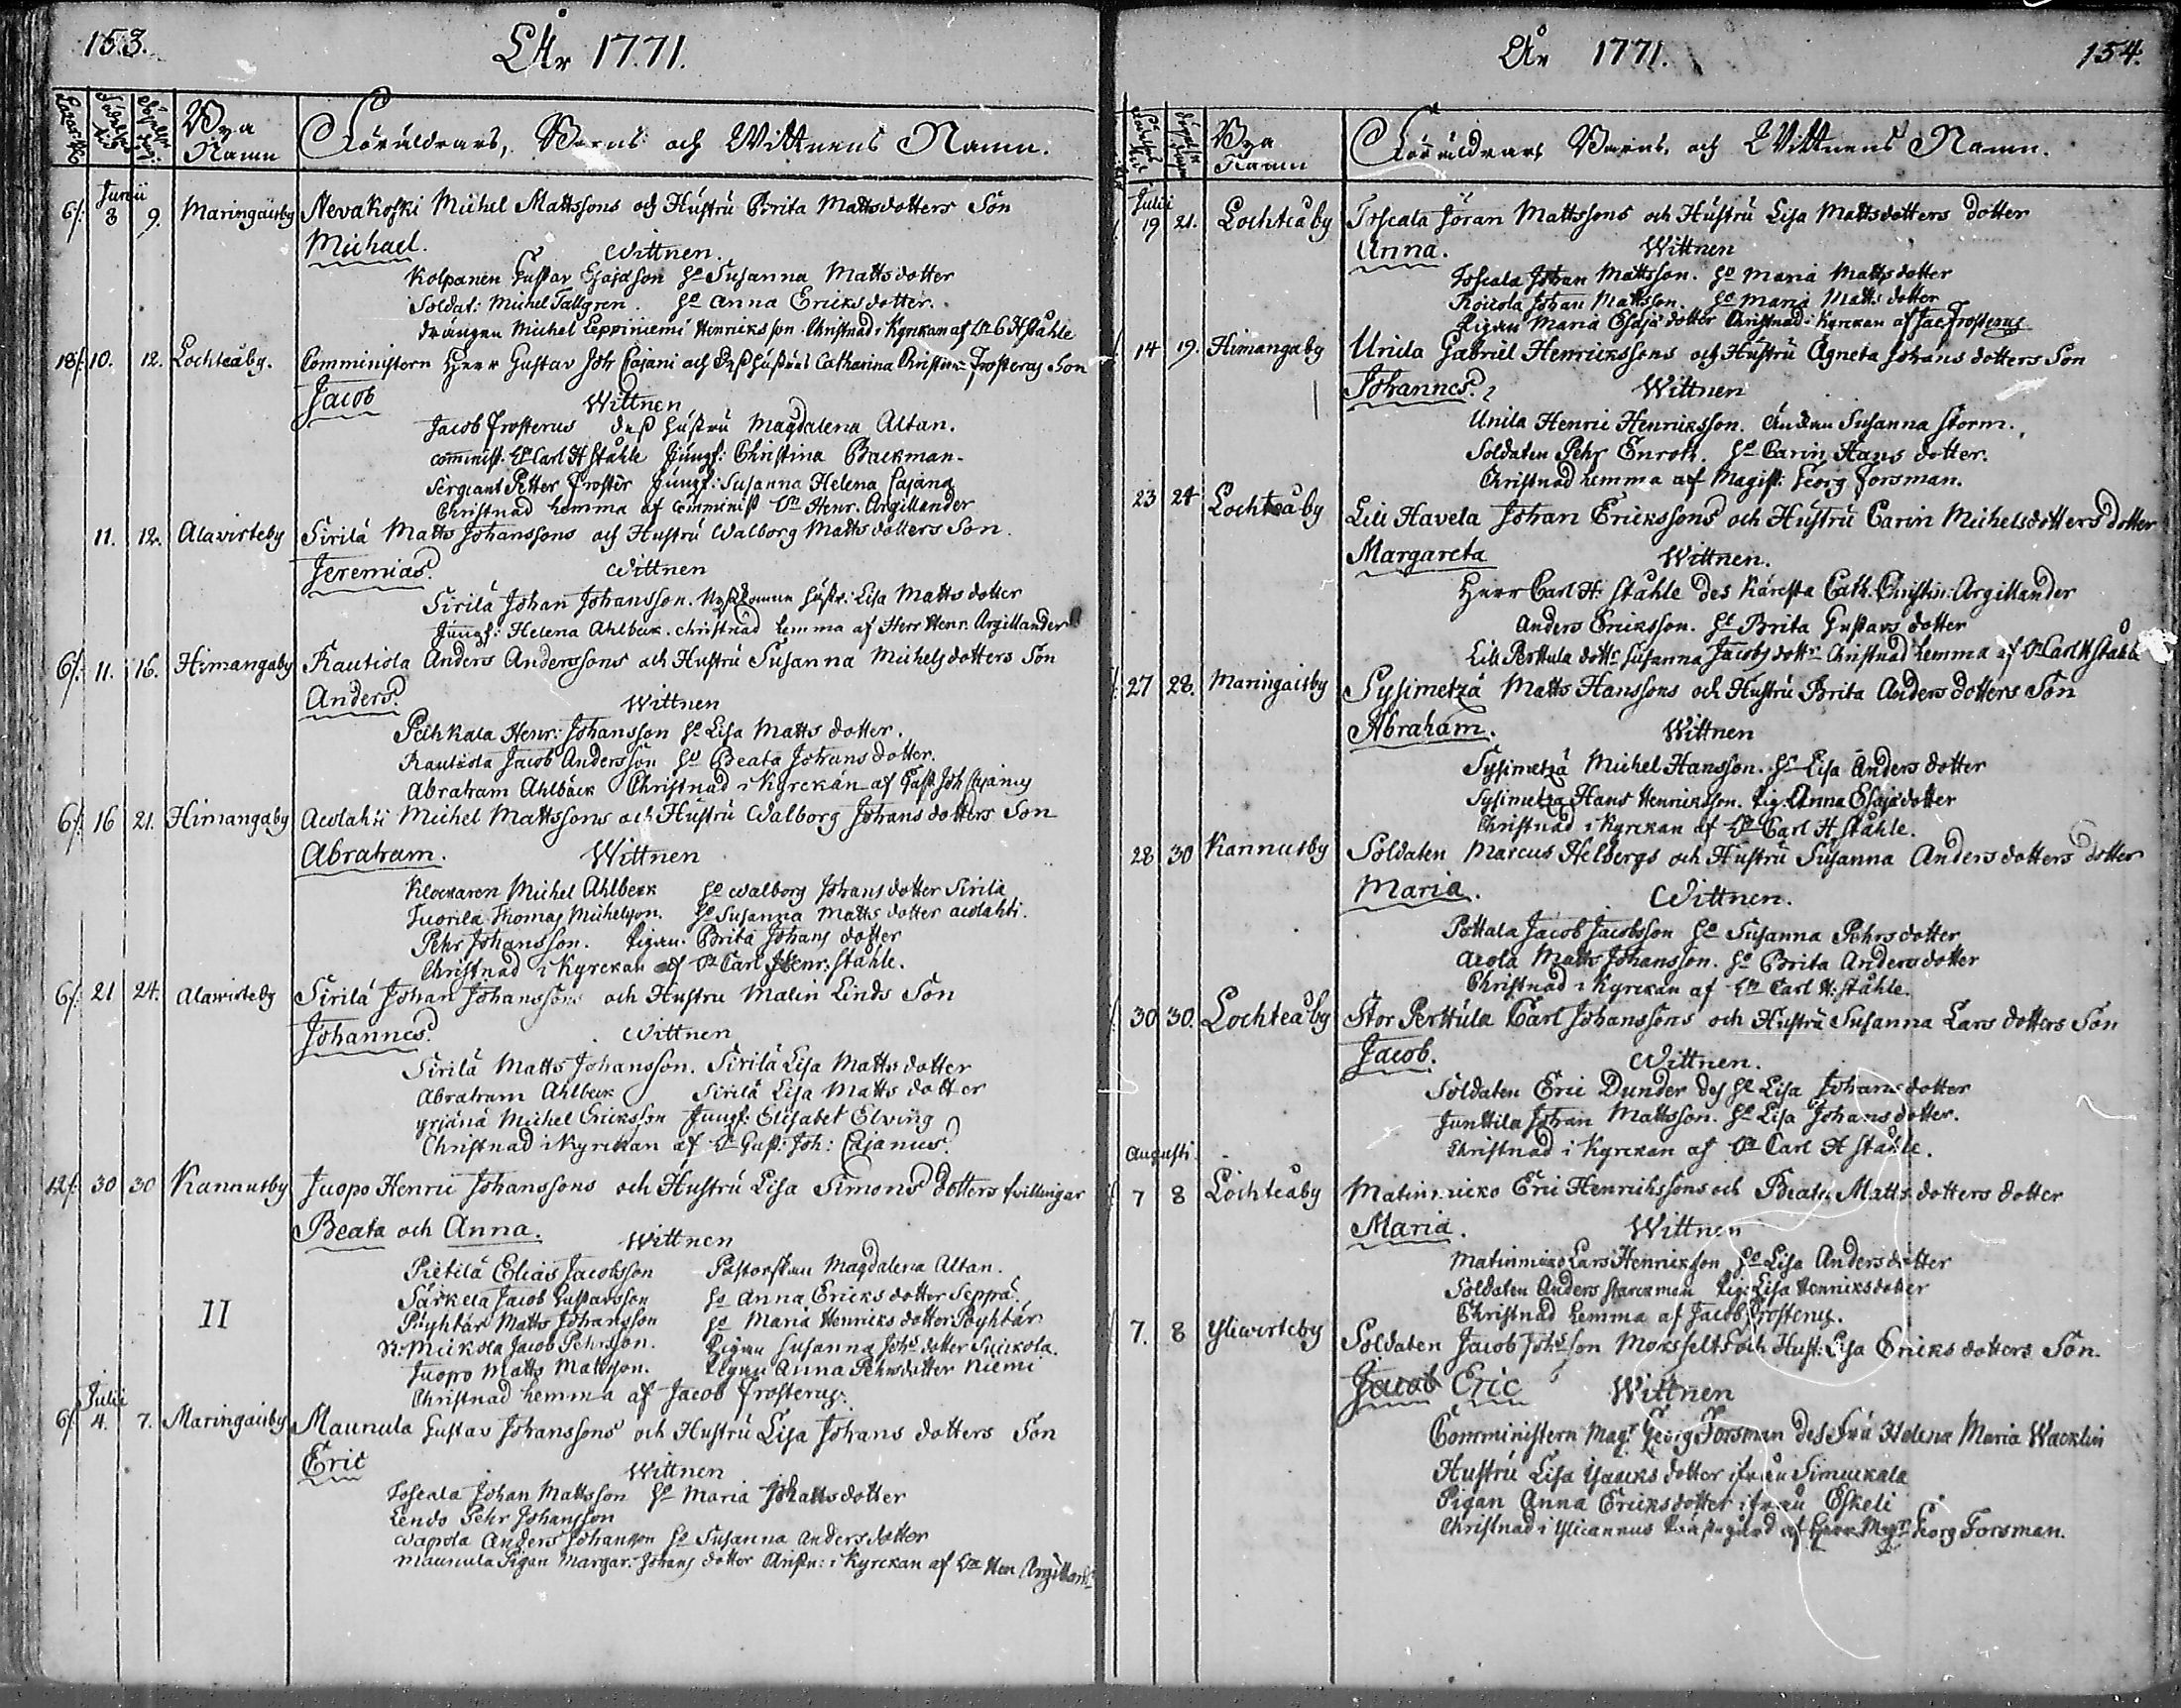 153.
År 1771.
Bya Namn
Föräldrars, Barns och Wittnens Namn.
Junii
6/: 8 9. Maringaisby Nevakoski Michel Mattssons och Hustru Brita Mattsdotters Son
Michael. Wittnen.
Kolpanen Gustav Esajasson Ho Susanna Matts dotter
Soldat: Michel Tallgren. Ho Anna Ericks dotter.
drängen Michel Leppiniemi Hinriksson. Christnad i Kyrckan af Hr C H Ståhle
18/: 10. 12. Lochteåby. Comministern Herr Gustav Joh Cajani och Deß Hustrus Catharina Christina Frosteray Son
Jacob Wittnen
Jacob Frosterus deß Hustru Magdalena Altan.
comminist. Hr Carl H Ståhle Jungf: Christina Backman.
Sergeant Petter Froster Jungf: Susanna Helena Cajana
Christnad hemma af Comminist Hr Henr. Argillander
11. 12. Alavirteby Sirilä Matts Johanssons och Hustru Walborg Matts dotters Son.
Jeremias. Wittnen
Sirilä Johan Johansson. Hustr: Lisa Matts dotter
Jungf: Helena Ahlbeck. christnad hemma af Herr Henr. Argillander
6/: 11. 16. Himangaby Rautiola Anders Anderssons och Hustru Susanna Michels dotters Son
Anders. Wittnen
Pöihkala Henr: Johansson Ho Lisa Matts dotter.
Rautiola Jacob Andersson Ho Beata Johans dotter.
Abraham Ahlbäck Christnad i Kyrckan af Past. Joh Cajanus
6/: 16 21. Himangaby Aeolahti Michel Mattssons och Hustru Walborg Johans dotters Son
Abraham. Wittnen
Klockaren Michel Ahlbeck Ho Walborg Johans dotter Sirilä
Juorila Thomas Michelson. Ho Susanna Matts dotter aeolahti.
Pehr Johansson. Pigan. Brita Johans dotter
Christnad i Kyrckan af Hr Carl Henr: Ståhle.
6/: 21 24. Alawirteby Sirilä Johan Johanssons och Hustru Malin Linds Son
Johannes. Wittnen
Sirilä Matts Johansson. Sirilä Lisa Matts dotter
Abraham Ahlbeck Sirilä Lisa Matts dotter
yrjänä Michel Ericksson Jungf: Elisabet Elving
Christnad i Kyrckan af Hr Gust: Joh: Cajanus.
12/: 30 30 Kannusby Juopo Henric Johanssons och Hustru Lisa Simons dotters tvillingar
Beata och Anna. Wittnen
Pietilä Elias Jacobsson Pastorskan Magdalena Altan.
Särkelä Jacob Gustavsson Ho Anna Ericks dotter Seppä.
II
Pöyhtäri Matts Johansson Ho Maria Henricks dotter Pöyhtäri
N: Mickola Jacob Pehrsson. Pigan Susanna Johs dotter Suickola.
Juopo Matts Mattsson. Pigan Anna Pehrsdotter Niemi
Christnad hemma af Jacob Frosterus.
Julii
6/: 4. 7. Maringaisby Maunula Gustav Johanssons och Hustru Lisa Johans dotters Son
Eric Wittnen
Toscala Johan Mattsson Ho Maria Matts dotter
Lendo Pehr Johansson
Wapola Anders Johansson Ho Susanna Anders dotter
Maunula Pigan Margar. Johans dotter Christn: i Kyrckan af Hr Hen Argilland:
År 1771.
154.
Bya Namn
Föräldrars Barns, och Wittnens Namn.
Julii
19 21. Lochteåby Toscala Jöran Mattssons och Hustru Lisa Mattsdotters dotter
Anna. Wittnen
Toscala Johan Mattsson. Ho Maria Matts dotter
Roicola Johan Mattsson. Ho Maria Matts dotter
Pigan Maria Esajä dotter Christnad i Kyrckan af Jac Frosterus
14 19. Himangaby Unila Gabriel Henrickssons och Hustru Agneta Johans dotters Son
Johannes. Wittnen
Unila Henric Henricksson. Änckan Susanna Storm.
Soldaten Pehr Enroth. Ho Carin Hans dotter.
Christnad hemma af Magist: Georg Forsman.
23 24 Lochteåby Lill Havela Johan Erickssons och Hustru Carin Michelsdotters dotter
Margareta Wittnen.
Herr Carl H: Ståhle des Käresta Cath. Christin: Argillander
Anders Ericksson. Ho Brita Gustavs dotter
Lill Perttula dottr Susanna Jacobs dottr Christnad hemma af Hr Carl H Ståhle
27 28. Maringaisby Sysimetzä Matts Hanssons och Hustru Brita Anders dotters Son
Abraham. Wittnen
Sysimetzä Michel Hansson. Ho Lisa Anders dotter
Sysimetza Hans Henricksson. Pig: Anna Esajä dotter
Christnad i Kyrckan af Hr Carl H Ståhle.
28 30 Kannusby Soldaten Marcus Helbergs och Hustru Susanna Anders dotters dotter
Maria. Wittnen.
Pottala Jacob Jacobsson Ho Susanna Pehrs dotter
Aeola Matts Johansson. Ho Brita Anders dotter
Christnad i Kyrckan af Hr Carl H: Ståhle.
30 30. Lochteåby Stor Perttula Carl Johanssons och Hustru Susanna Lars dotters Son
Jacob. Wittnen.
Soldaten Eric Dunder des Ho Lisa Johans dotter
Junttila Johan Mattsson. Ho Lisa Johans dotter.
Christnad i Kyrckan af Hr Carl H Ståhle.
Augusti.
7 8 Lochteåby Matinmicko Eric Henrichssons och Beata Matts dotters dotter
Maria. Wittnen
Matinmicko Lars Henricksson Ho Lisa Anders dotter
Soldaten Anders Starckman Pig: Lisa Henricks dotter
Christnad hemma af Jacob Frosterus.
7. 8 Yliwirteby Soldaten Jacob Johsson Morsfelts och Hust: Lisa Ericks dotters Son
Jacob Eric Wittnen
Comministern Magr Georg Forsman des Fru Helena Maria Wacklin
Hustru Lisa Isaacks dotter ifrån Simuckala
Pigan Anna Ericks dotter ifrån Eskeli
Christnad i Ylicannus af Herr Magr Georg Forsman.